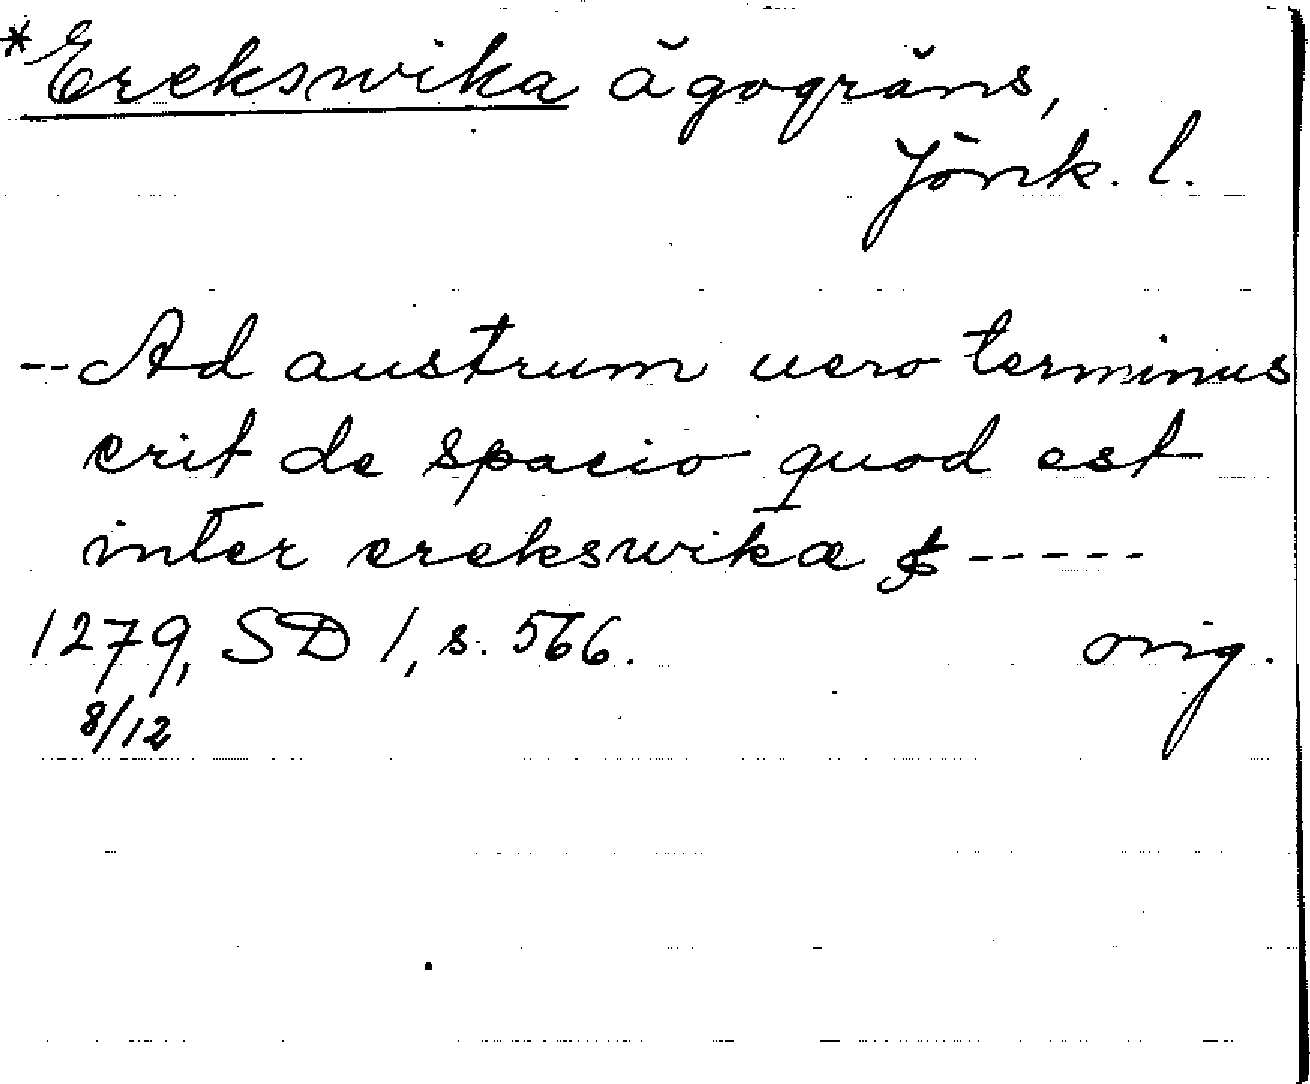 *Erekswika ägogräns,
Jönk. l.
--Ad austrum uero terminus
erit de spacio quod est
inter erekswika & -----
1279, SD 1, s. 566. orig.
8/12